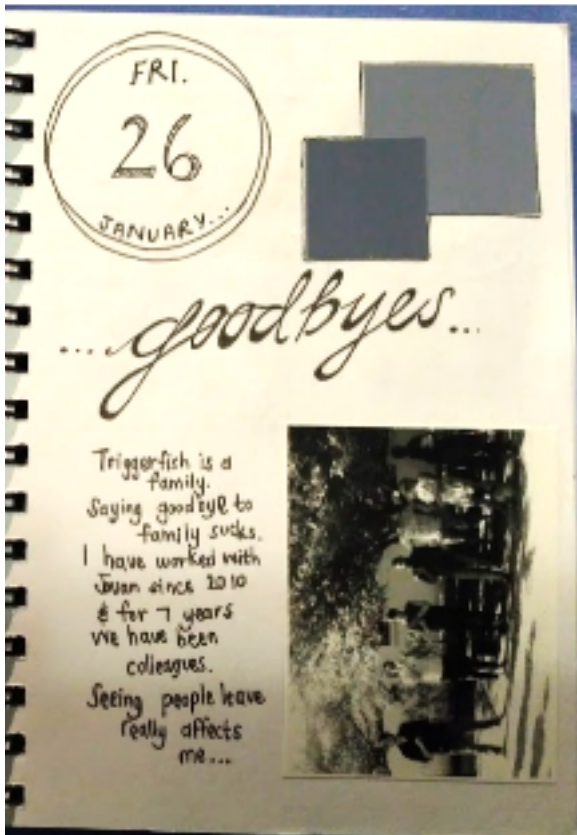 FRI.
26
JANUARY...
....goodbyes...
Triggerfish is a
family.
Saying goodbye to
family sucks.
I have worked with
Jovan since 2010
& for 7 years
we have been
colleagues.
Seeing people leave
really affects
me...